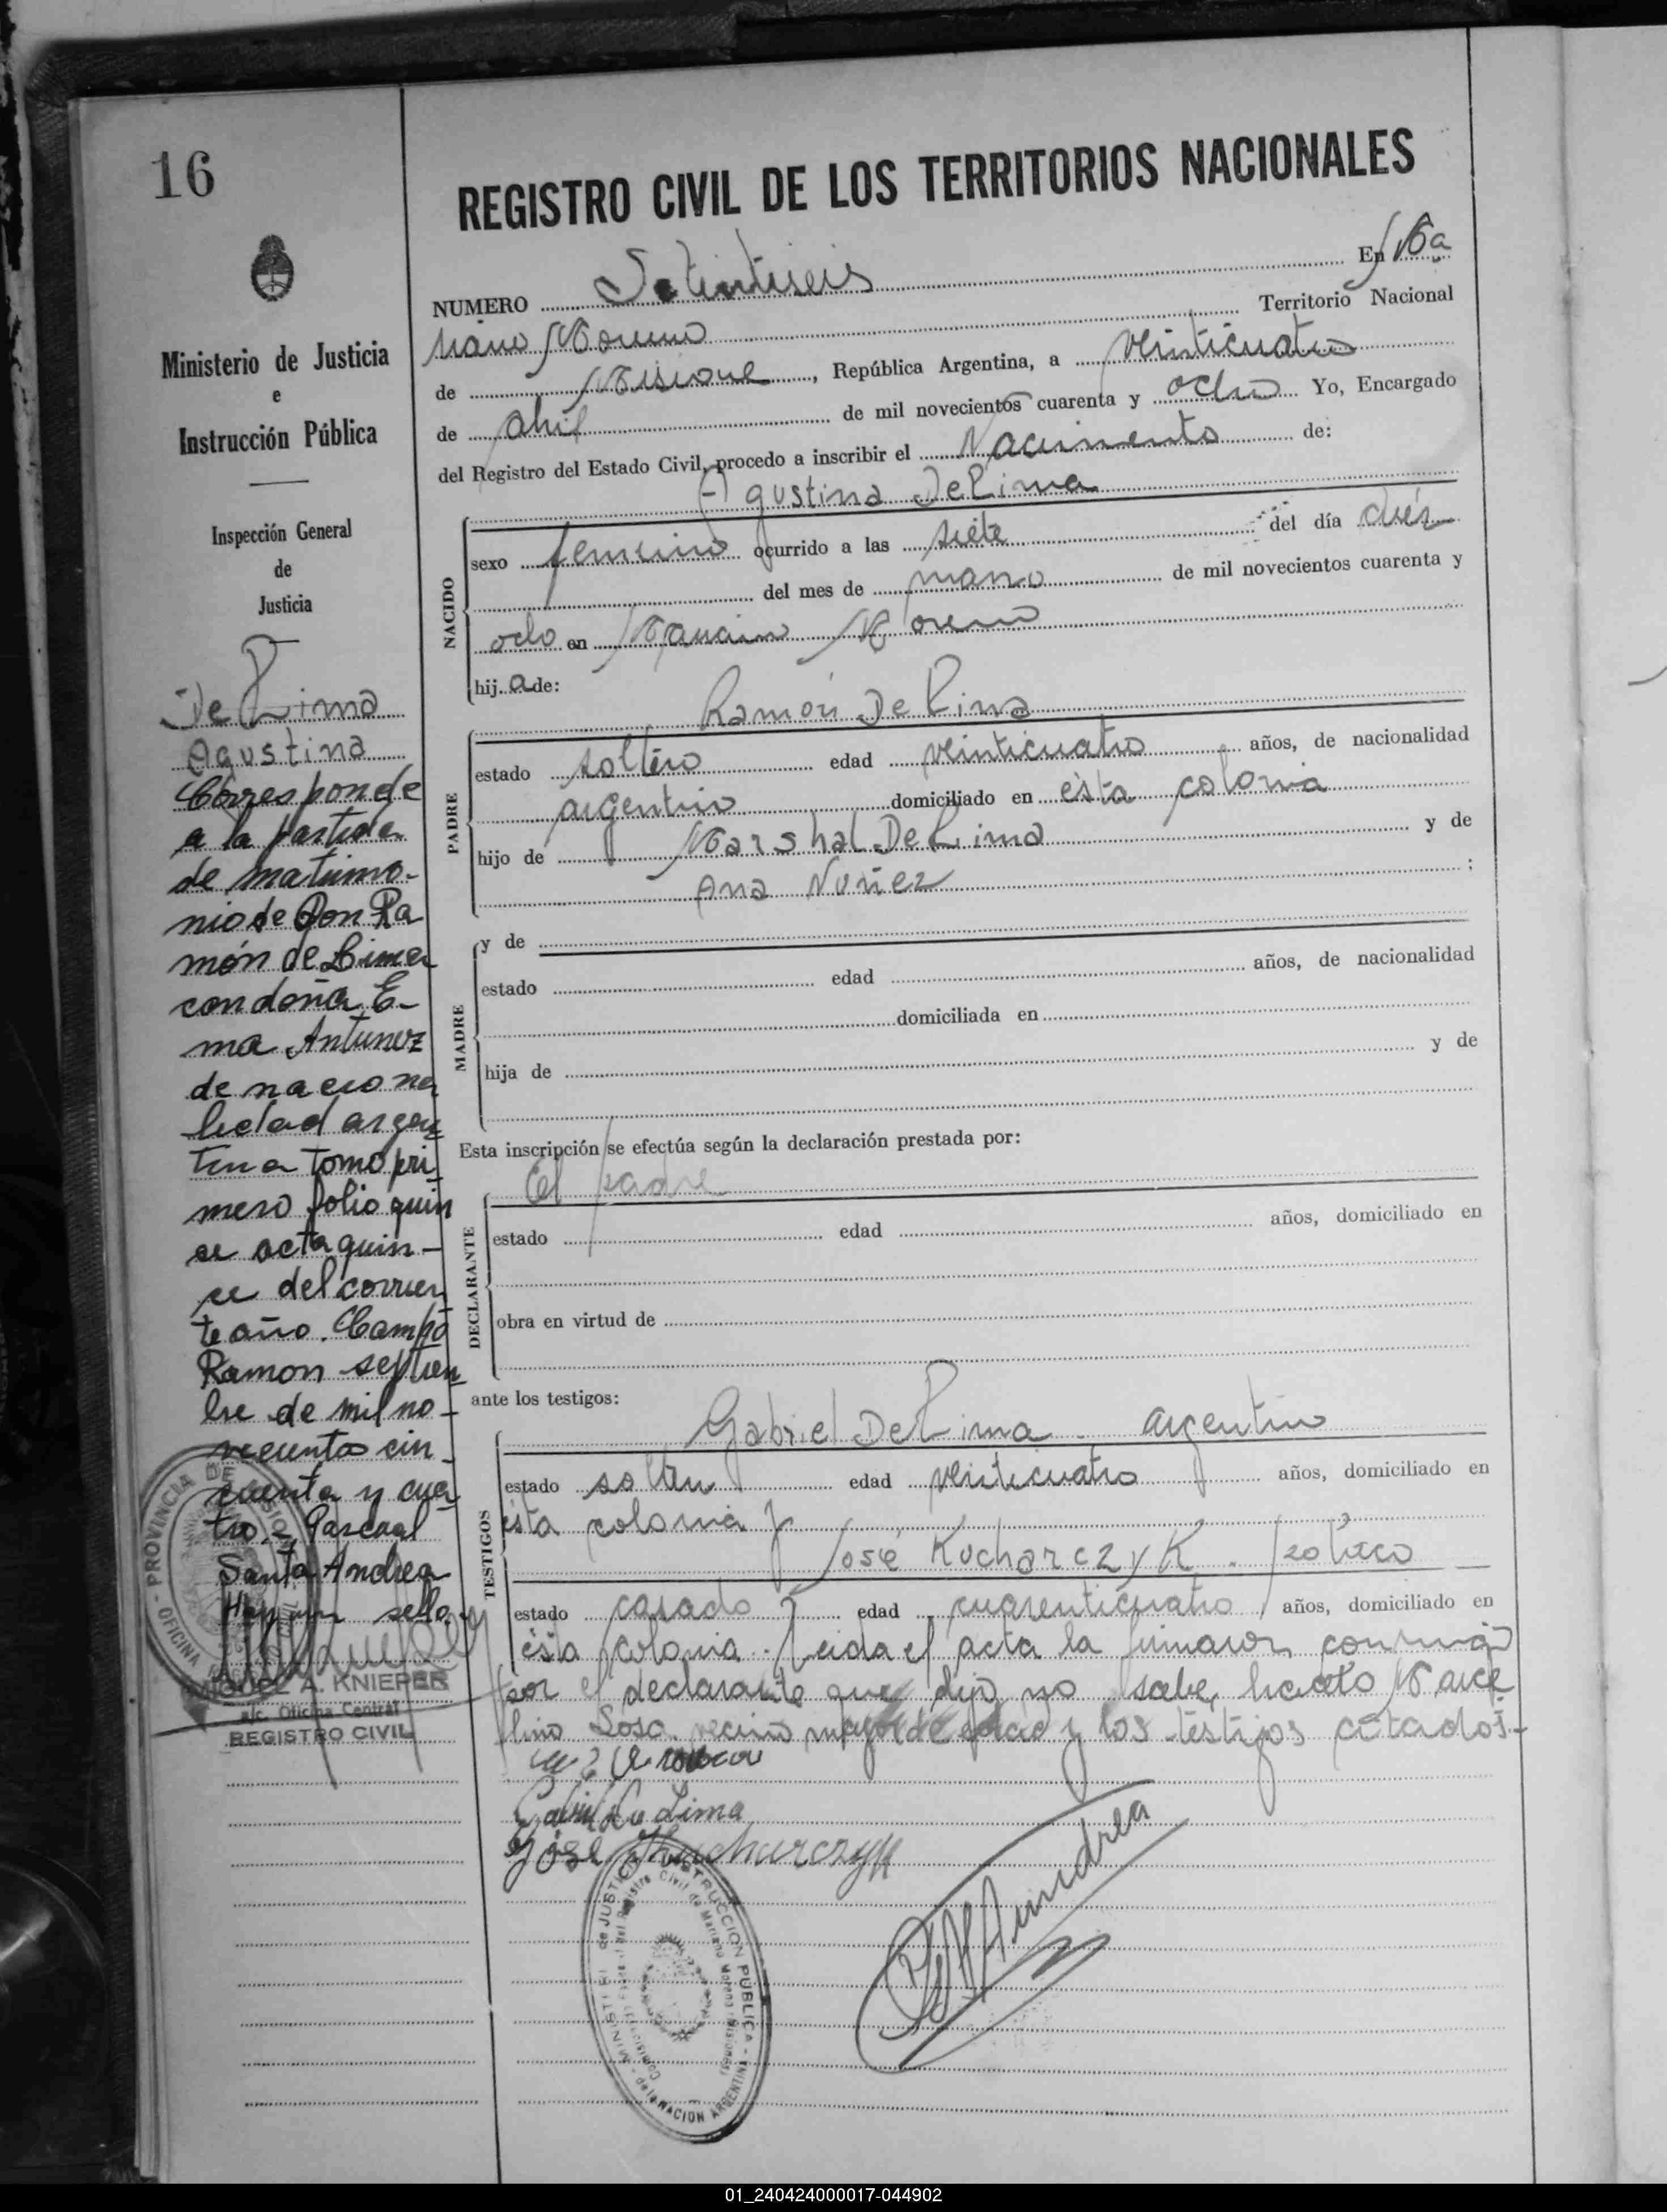 16
REGISTRO CIVIL DE LOS TERRITORIOS NACIONALES
Ministerio de Justicia
e
Instrucción Pública
Inspección General
de
Justicia
De Lima
Agustina
Corresponde
a la partida
de matrimo-
nio de Don Ra
món de Lima
con doña E-
ma Antunez
de naciona
lidad argen
tina tomo pri
mero folio quin
ce acta quin-
ce del corrien
te año. Campo
Ramon septiem
bre de mil no-
vecientos cin-
cuenta y cua
tro = Pascual
Santa Andrea
Hay un sello
MIGUEL A. KNIEPER
a/c. Oficina Central
REGISTRO CIVIL
PROVINCIA DE MISIONES - OFICINA
NUMERO Setentiseis En Ma
riano Moreno Territorio Nacional
de Misiones, República Argentina, a veinticuatro
de abril de mil novecientos cuarenta y ocho Yo, Encargado
del Registro del Estado Civil, procedo a inscribir el Nacimiento de:
Agustina De Lima
NACIDO
sexo femenino ocurrido a las siete del día diéz
del mes de marzo de mil novecientos cuarenta y
ocho en Mariano Moreno
hija de:
Ramón De Lima
PADRE
estado soltero edad veinticuatro años, de nacionalidad
argentino domiciliado en ésta colonia
hijo de Marshal De Lima y de
Ana Nuñez ;
y de
MADRE
estado edad años, de nacionalidad
domiciliada en
hija de y de
Esta inscripción se efectúa según la declaración prestada por:
El padre
DECLARANTE
estado edad años, domiciliado en
obra en virtud de
ante los testigos:
Gabriel De Lima - argentino
TESTIGOS
estado soltero edad veinticuatro años, domiciliado en
ésta colonia y
José Kucharczyk - polaco
estado casado edad cuarenticuatro años, domiciliado en
ésta colonia. Leida el acta la firmaron conmigo
por el declarante que dijo no saber hacerlo Marce
lino Sosa vecino mayor de edad y los testigos citados.-
Gabriel De Lima
José Kucharczyk
MINISTERIO de JUSTICIA e INSTRUCCION PUBLICA - de la NACION ARGENTINA
Registro Civil de Mariano Moreno (Misiones)
01_240424000017-044902